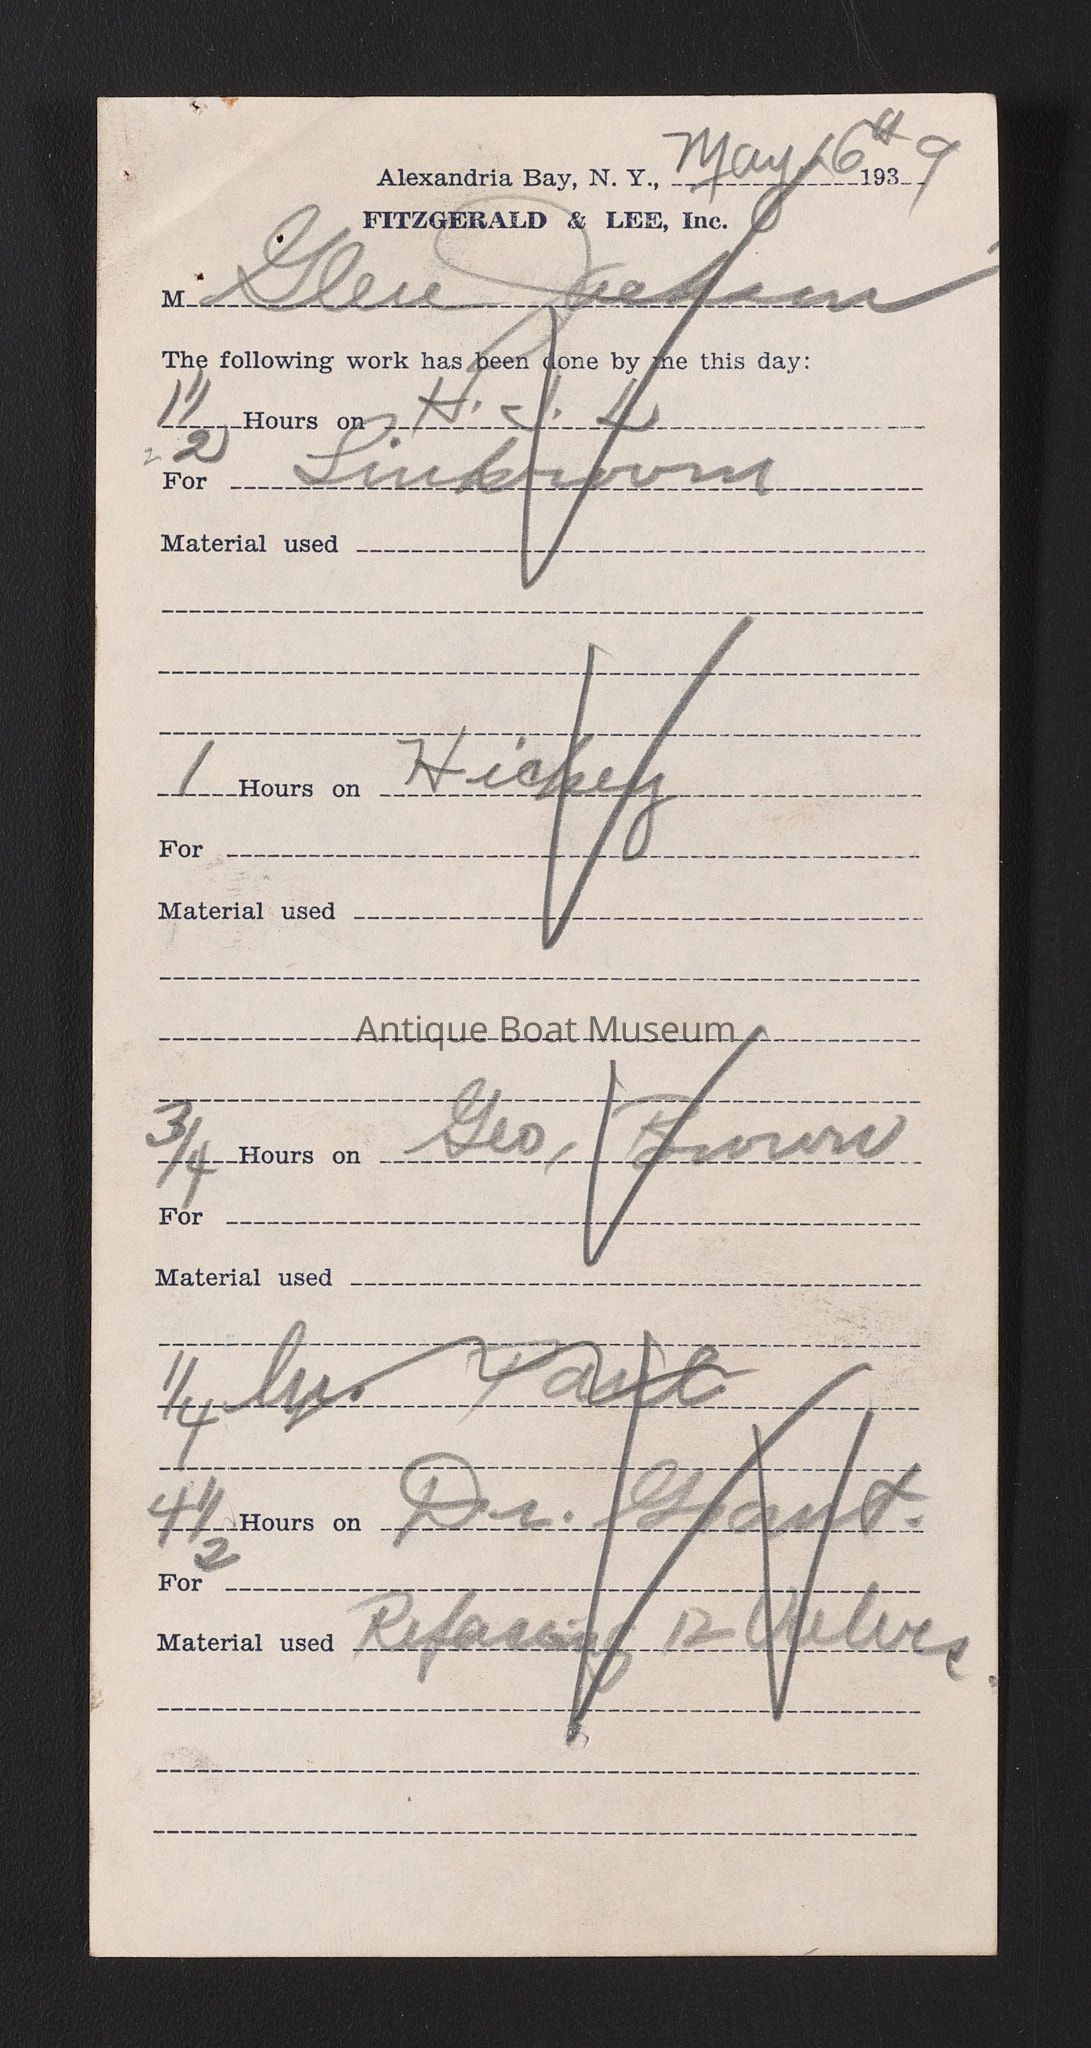 Alexandria Bay, N. Y., May 16th 1939
FITZGERALD & LEE, Inc.
M Glen Jackson
The following work has been done by me this day:
1 1/2 Hours on H. J. L
For
Material used
1 Hours on Hickey
For
Material used
Antique Boat Museum
3/4 Hours on Geo. Brown
For
Material used
1/4
4 1/2 Hours on Dr. Grant.
For
Material used Refacing 12 Valves.